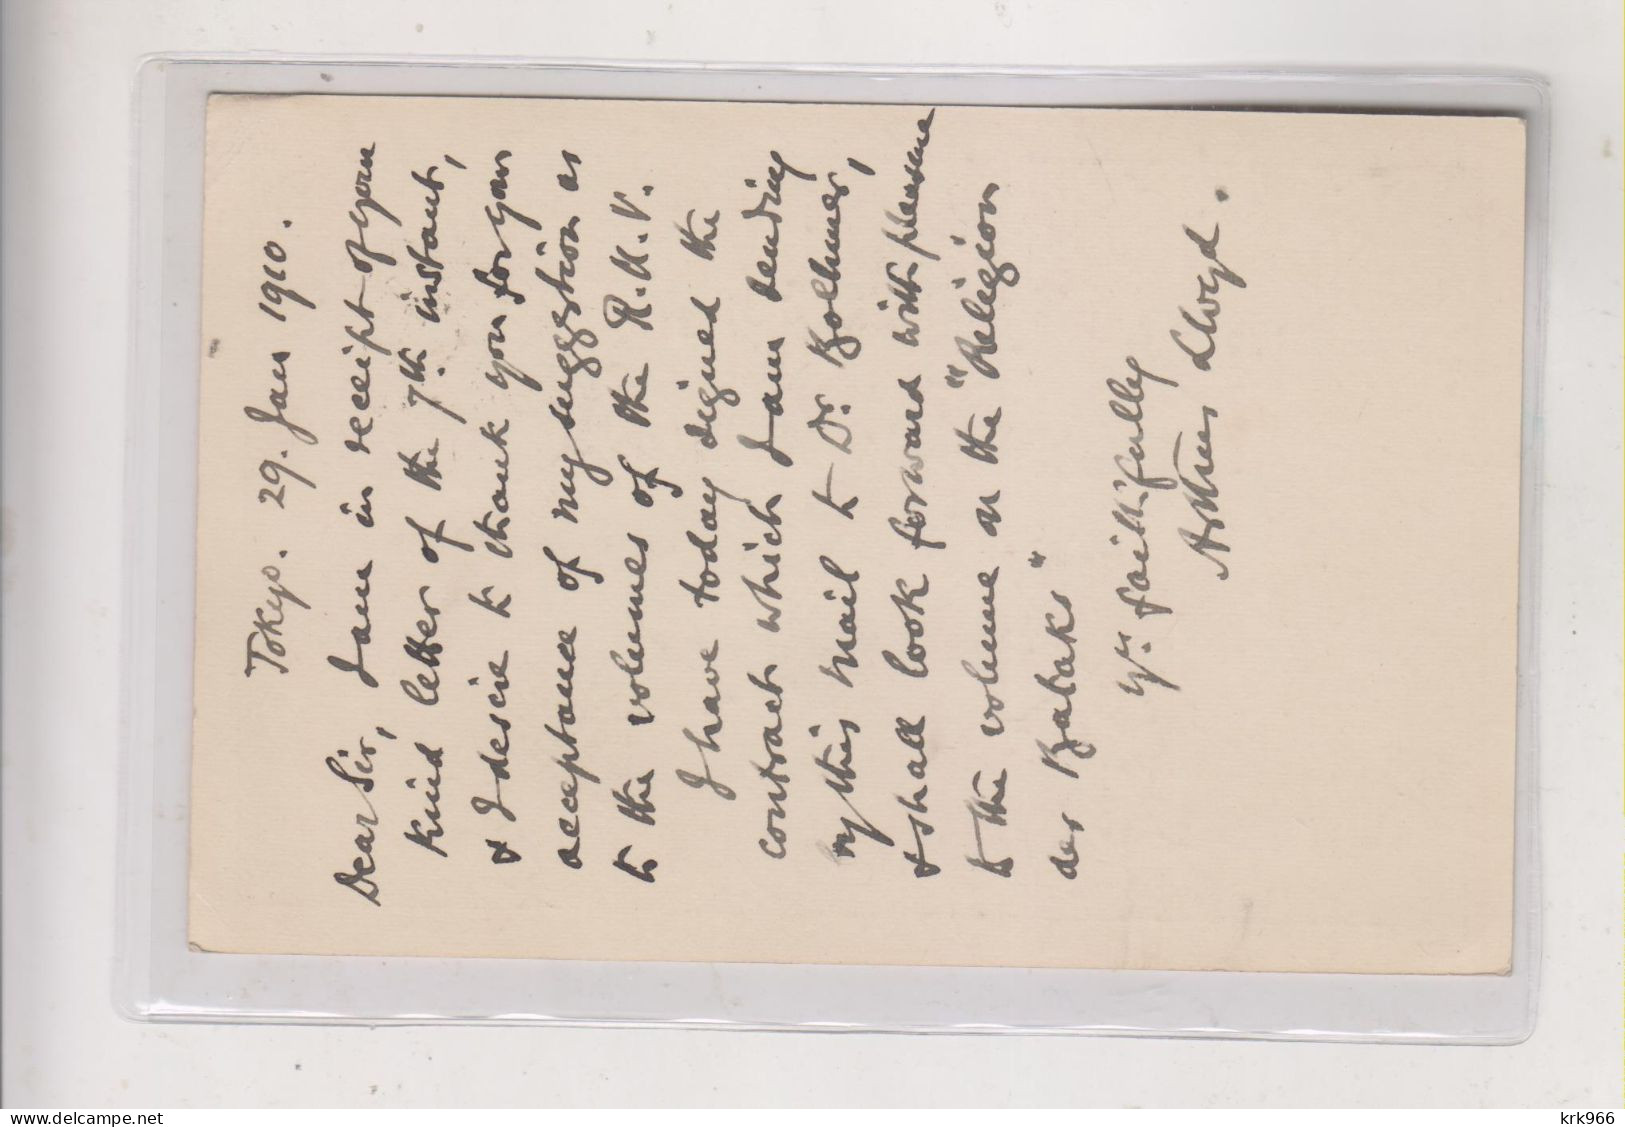 Tokyo. 29. Jan 1910.
Dear Sir, I am in receipt of your
kind letter of the 7th. instant,
& I desire to thank you for your
acceptance of my suggestion as
to the volumes of the R.U.V.
I have today signed the
contract which I am sending
by this mail to Dr.
& shall look forward with pleasure
to the volume on the "Religion
der Bataks"
Yrs. faithfully
Arthur Lloyd.
www.delcampe.net
krk966